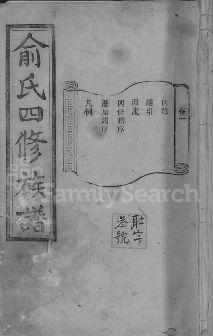 俞氏四修族譜
卷一
目錄
譜引
源流
四修譜序
歷屆譜序
凡例
耻字
叁號
FamilySearch